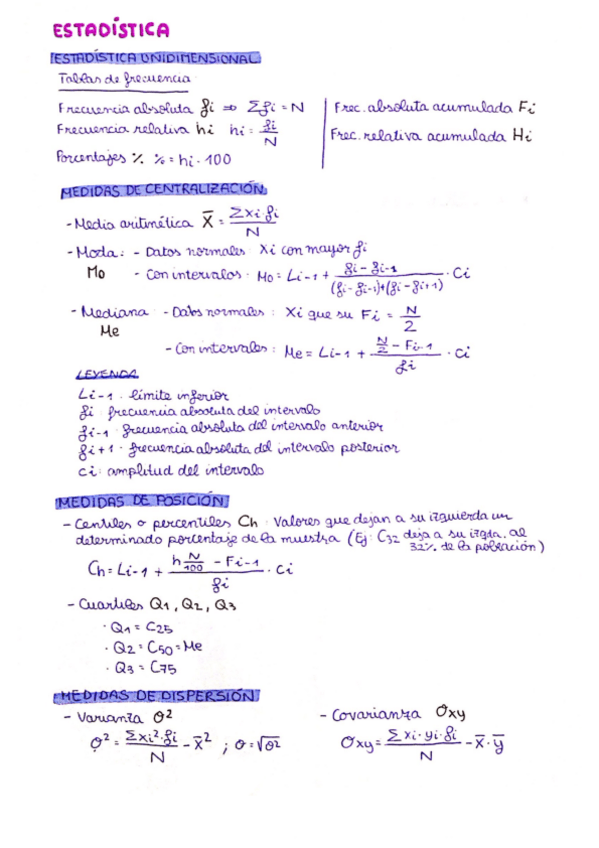 ESTADÍSTICA
ESTADÍSTICA UNIDIMENSIONAL
Tablas de frecuencia
Frecuencia absoluta fi ⇒ Σfi = N
Frecuencia relativa hi hi = fi/N
Porcentajes % % = hi · 100
Frec. absoluta acumulada Fi
Frec. relativa acumulada Hi
MEDIDAS DE CENTRALIZACIÓN
- Media aritmética X̄ = Σxi·fi/N
- Moda: - Datos normales Xi con mayor fi
Mo - Con intervalos · Mo = Li-1 + (fi - fi-1)/((fi - fi-1)+(fi - fi+1)) · Ci
- Mediana - Datos normales : Xi que su Fi = N/2
Me
- Con intervalos : Me = Li-1 + (N/2 - Fi-1)/fi · Ci
LEYENDA
Li-1 · límite inferior
fi · frecuencia absoluta del intervalo
fi-1 · frecuencia absoluta del intervalo anterior
fi+1 · frecuencia absoluta del intervalo posterior
ci: amplitud del intervalo
MEDIDAS DE POSICIÓN
- Centiles o percentiles Ch · Valores que dejan a su izquierda un
determinado porcentaje de la muestra (Ej: C32 deja a su izqda. al
32% de la población)
Ch = Li-1 + (h N/100 - Fi-1)/fi · Ci
- Cuartiles Q1, Q2, Q3
· Q1 = C25
· Q2 = C50 = Me
· Q3 = C75
MEDIDAS DE DISPERSIÓN
- Varianza σ²
σ² = Σxi²·fi/N - x̄² ; σ = √σ²
- Covarianza σxy
σxy = Σxi·yi·fi/N - x̄·ȳ